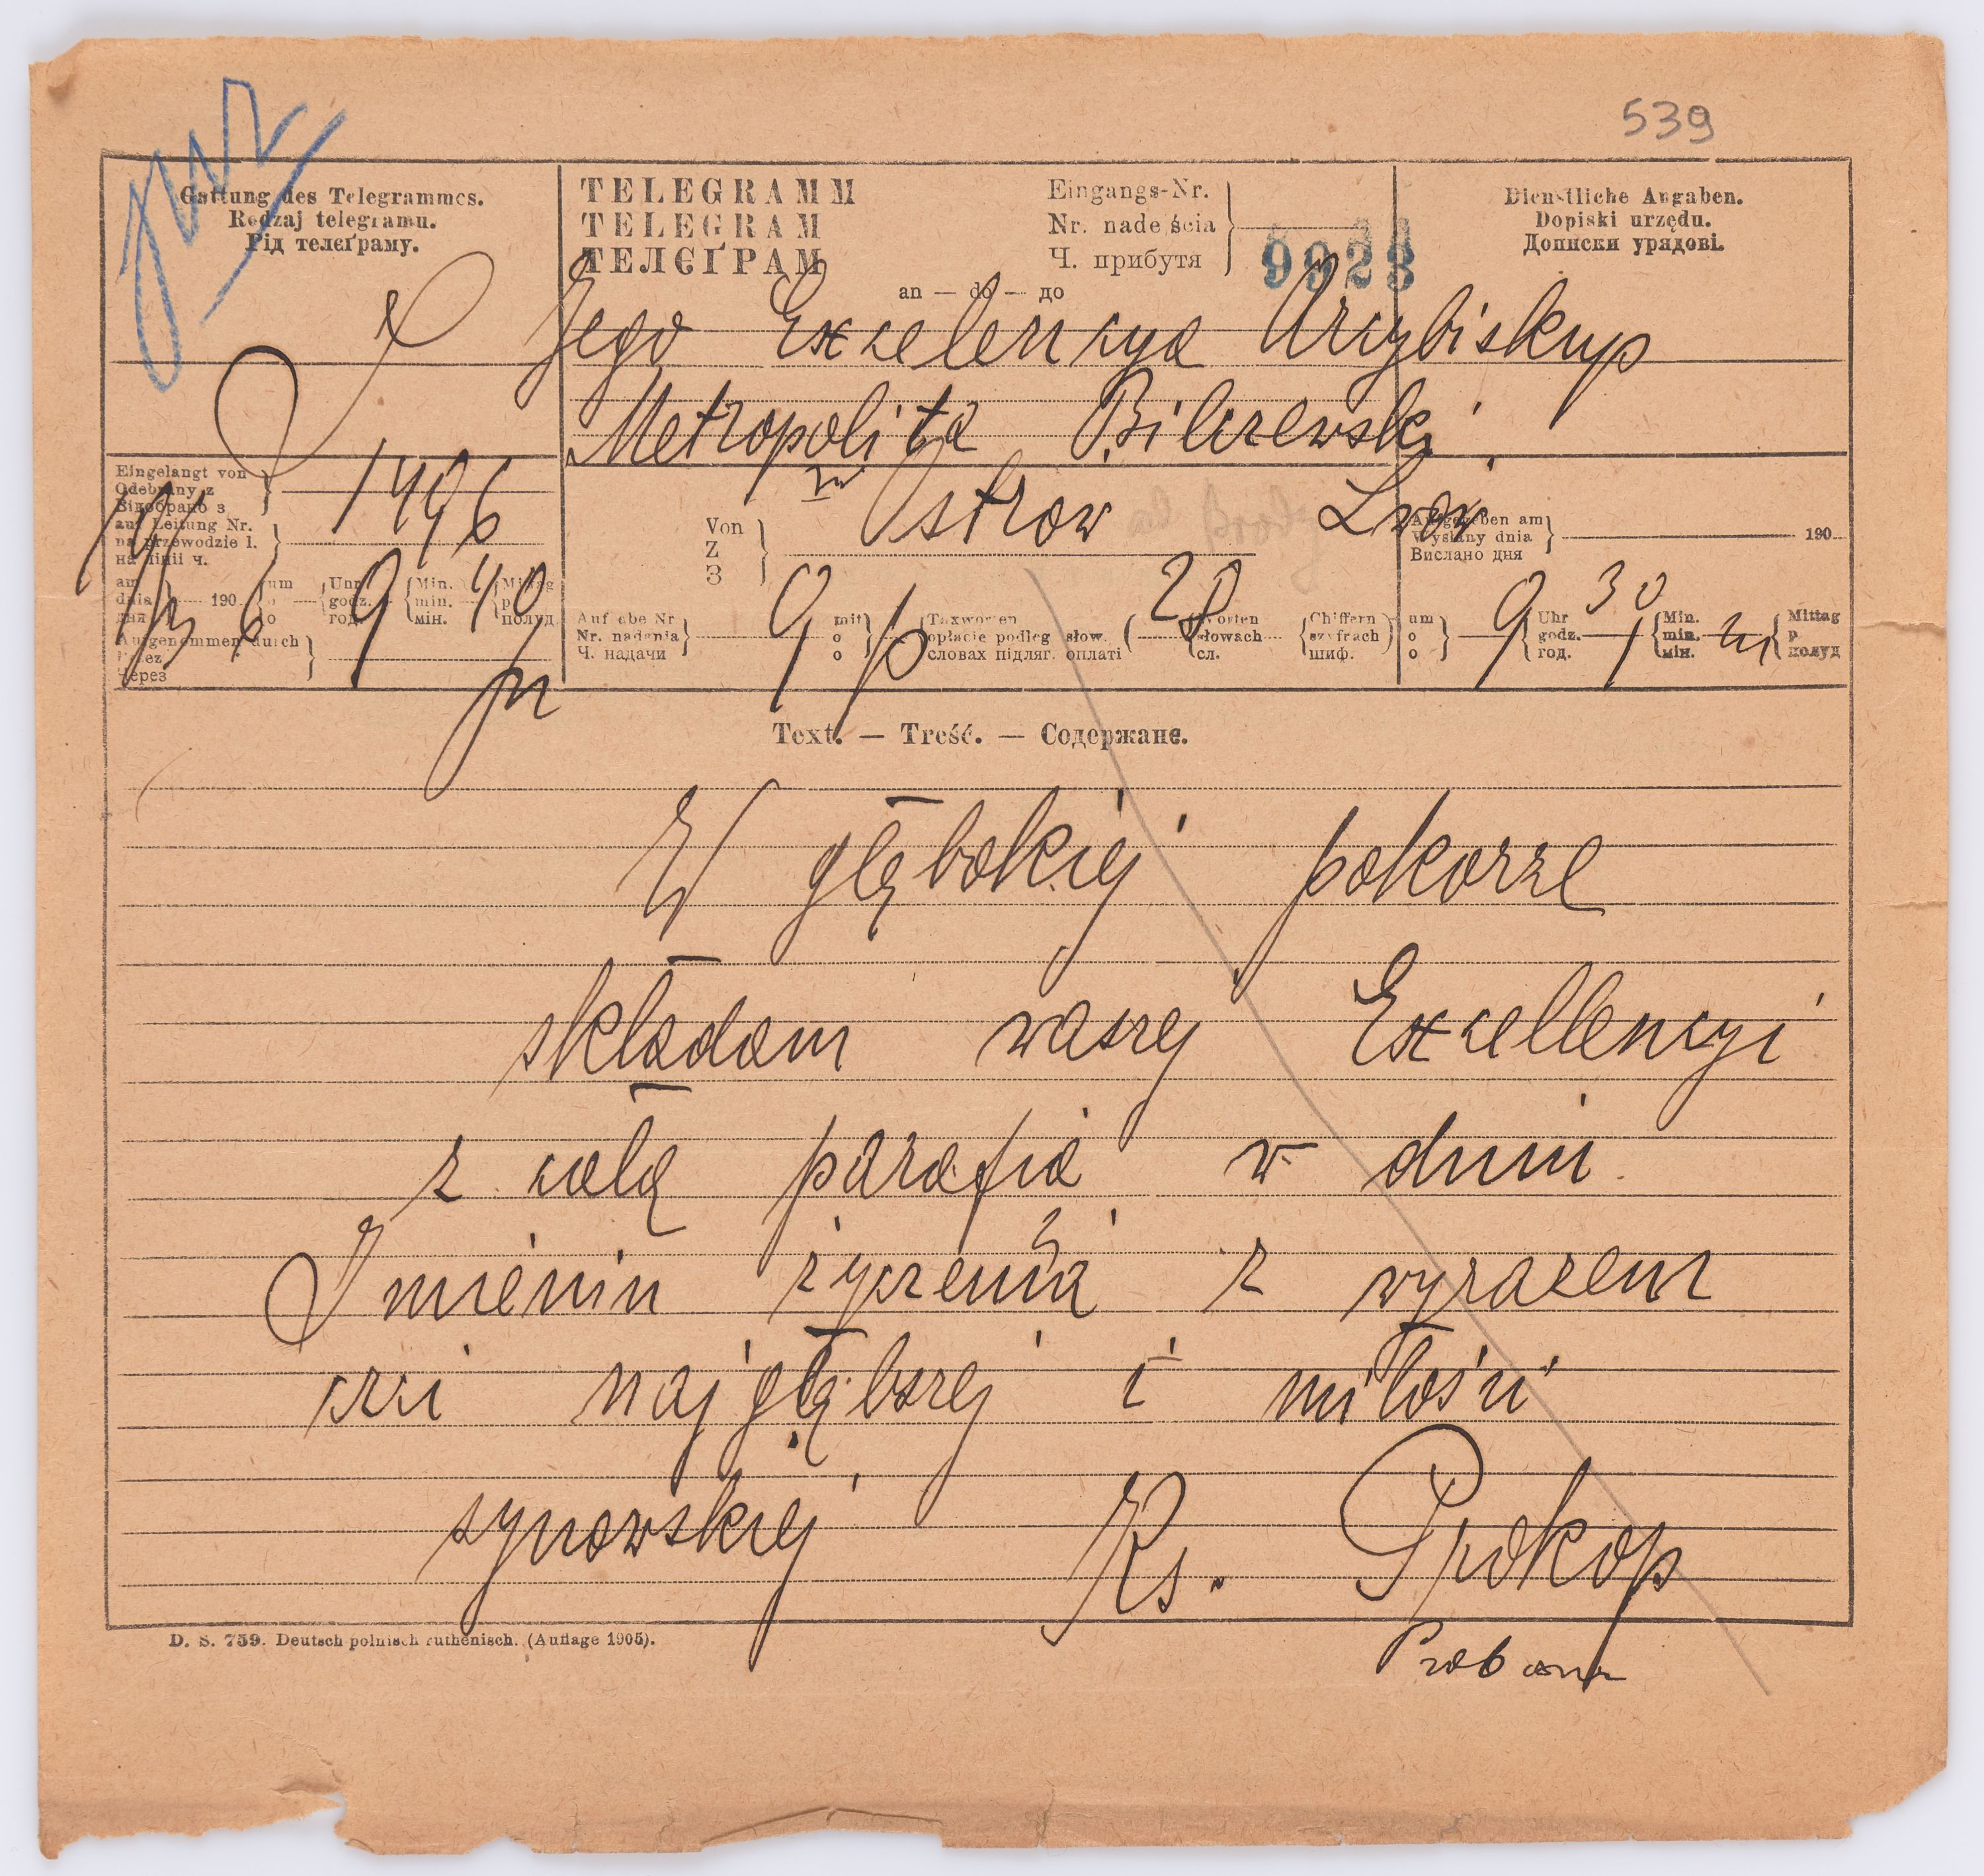 539
Gattung des Telegrammes.
Rodzaj telegramu.
Рід телєґраму.
TELEGRAMM
TELEGRAM
ТЕЛЄҐРАМ
Eingangs-Nr.
Nr. nadeścia
Ч. прибутя
9923
Dienstliche Angaben.
Dopiski urzędu.
Дописки урядові.
an — do — до
Jego Excelencya Arcybiskup
Metropolita Bilczewski
Eingelangt von
Odebrany z
Відобрано з
auf Leitung Nr.
na przewodzie l.
на лінії ч.
1496
Von
Z
З
Ostrow Lwów
Aufgegeben am
Wysłany dnia
Вислано дня
190
am
dnia
дня
190
um
o
о
Uhr
godz.
год.
Min.
min.
мін.
Mittag
p
полуд
9 40
Aufgenommen durch
przez
через
Aufgabe Nr
Nr. nadania
Ч. надачи
9
mit
o
о
Taxworten
opłacie podleg słow.
словах підляг. оплаті
20
Worten
słowach
сл.
Chiffern
szyfrach
шиф.
um
o
о
9
Uhr
godz.
год.
30
Min.
min.
мін.
Mittag
p
полуд
Text. — Treść. — Содержане.
W głębokiej pokorze
składam waszej Excellencyi
z całą parafią w dniu
Imienin życzenia z wyrazem
czci najgłębszej i miłości
synowskiej Ks. Prokop
D. S. 759. Deutsch polnisch ruthenisch. (Auflage 1905).